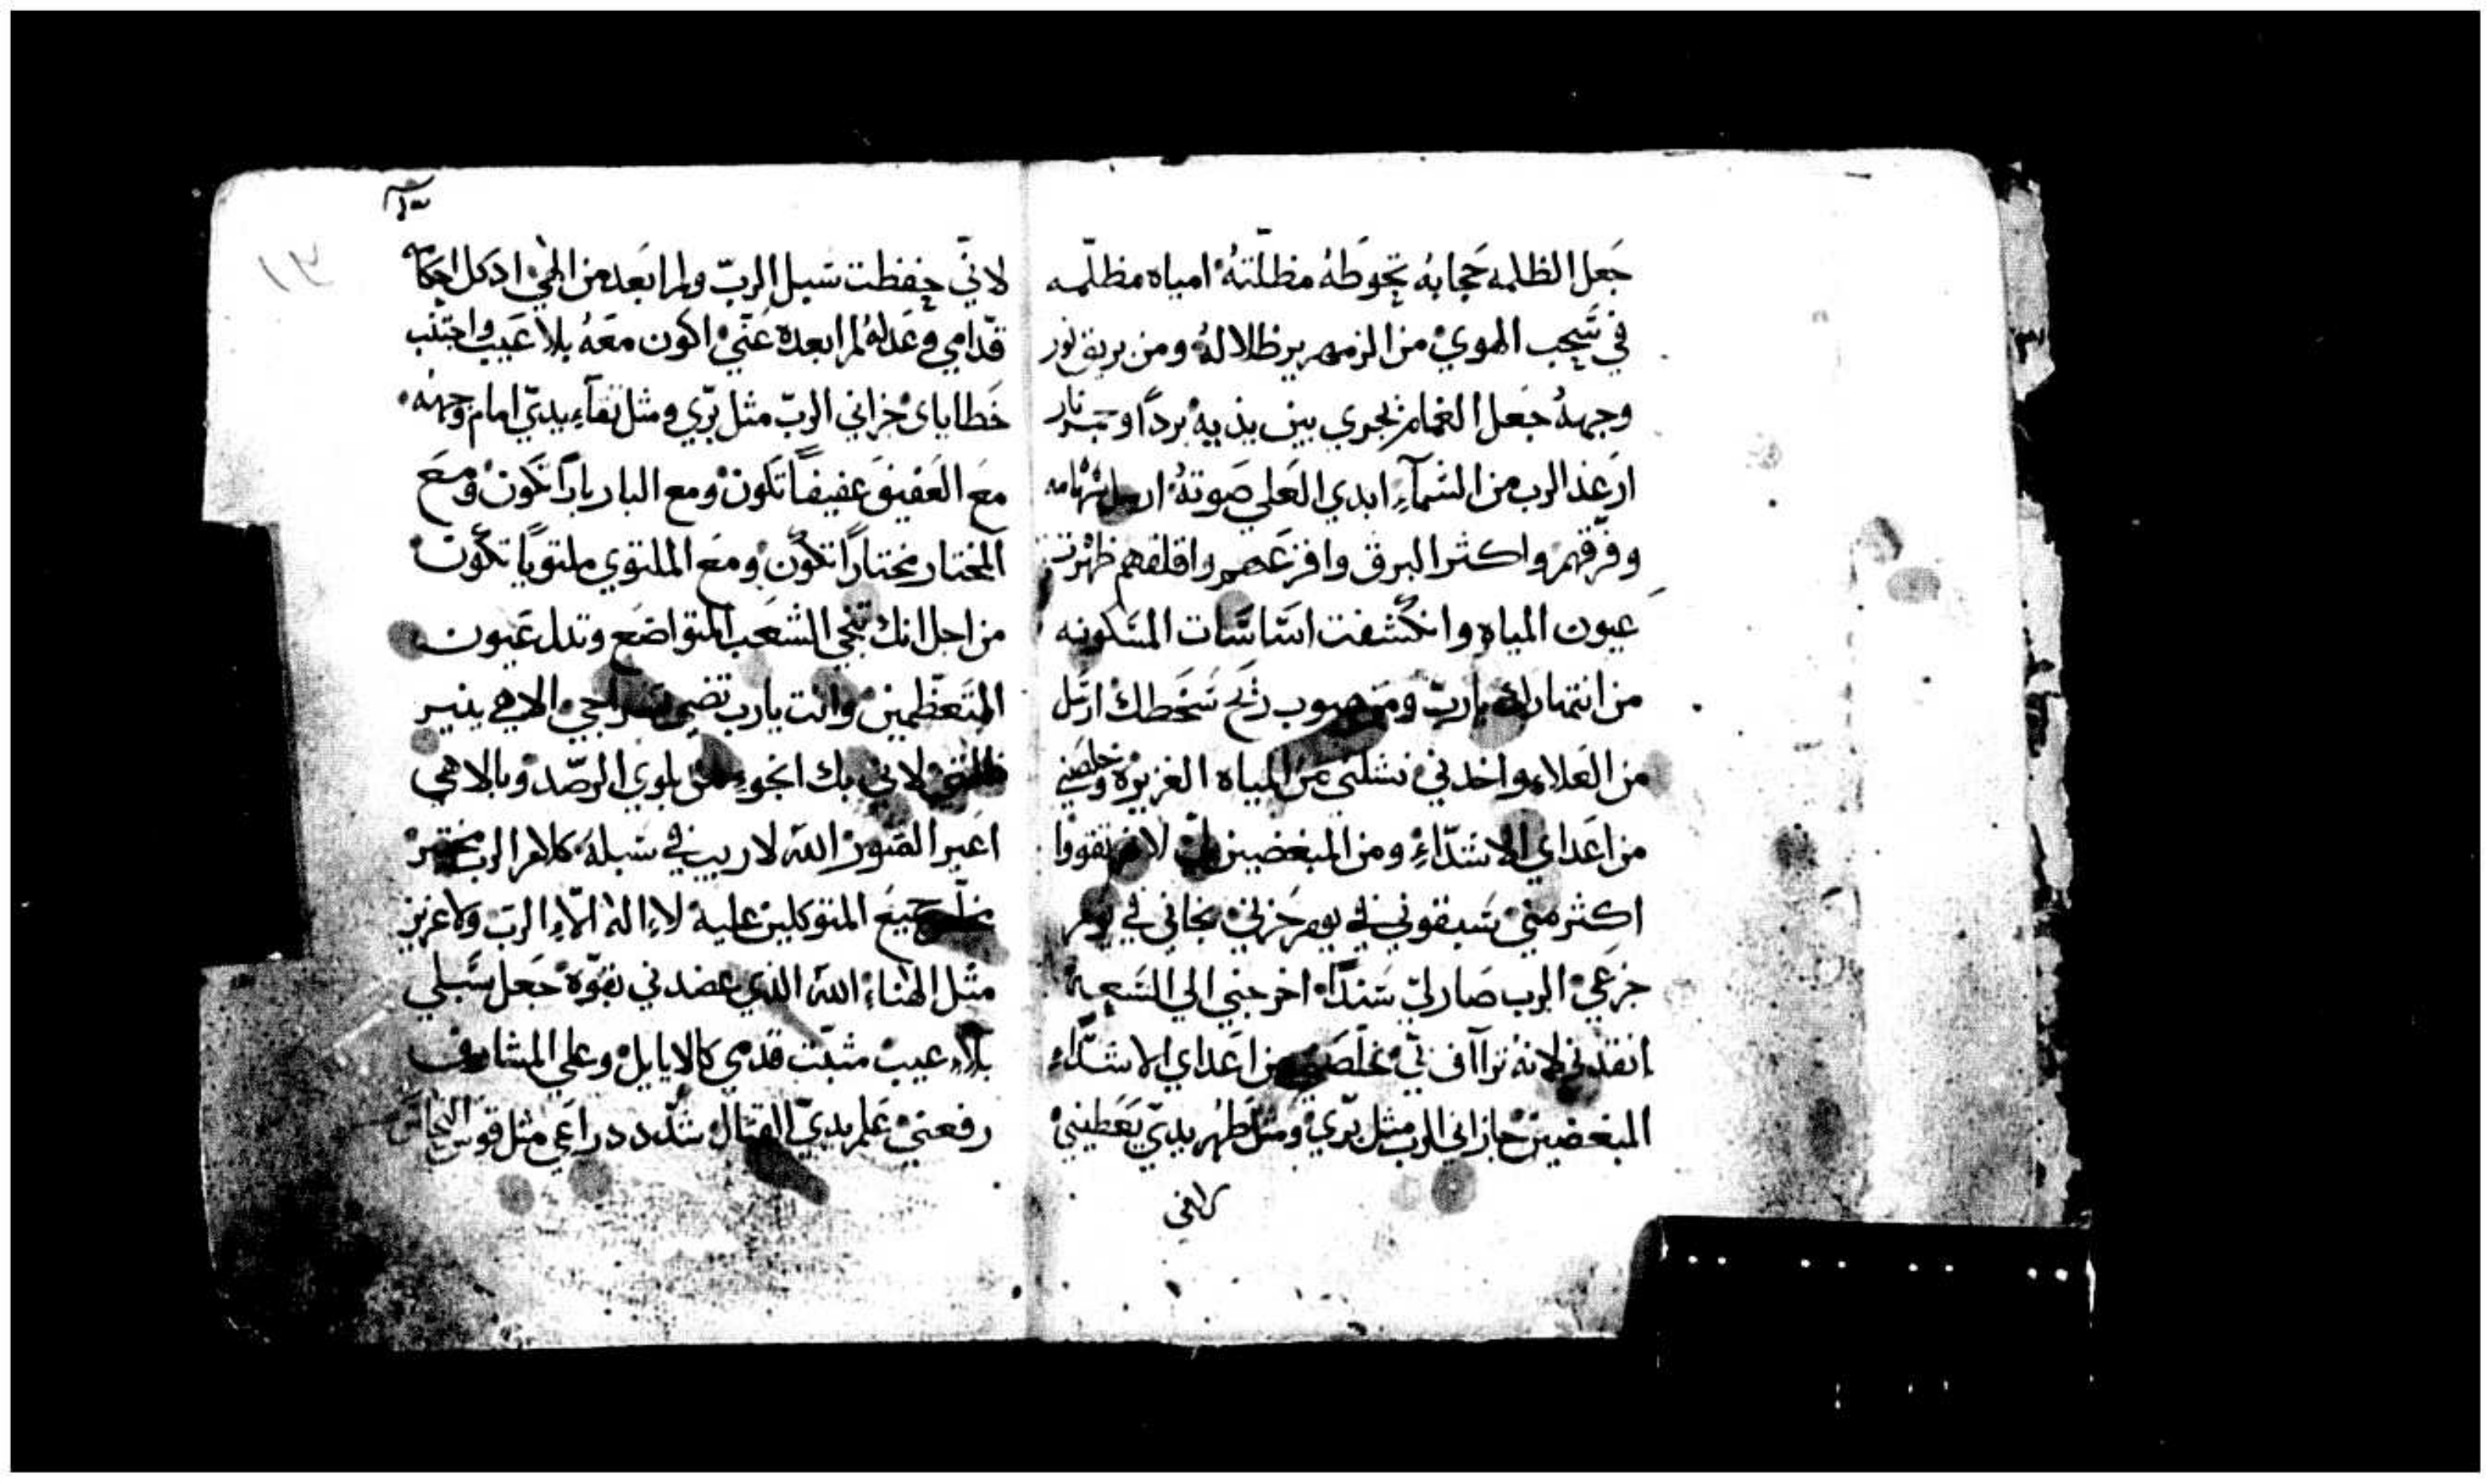 جعل الظلمه حجابه تحوطه مظلّته امياه مظلّمه
في سحب الهوي من الزمهرير ظلاله ومن بريق نور
وجهه جعل الغمام تجري بين يديه برداً وجمر نار
ارعد الرب من السمآء ابدي العلي صوته ارسل سهامه
وفرّقهم واكثر البرق وافزعهم واقلقهم ظهرت
عيون المياه وانكشفت اساسات المسكونه
من انتهارك يارب ومن هبوب ريح سخطك ارسل
من العلاء واخدني نشلني من المياه الغزيره وخلصني
من اعداي الاشدّاء ومن المبغضين لي لانهم تقووا
اكثر مني سبقوني في يوم حزني نجاني في يوم
جزعي الرب صار لي سنداً اخرجني الي السعه
انقدني لانه تراآف بي خلصني من اعداي الاشدّاء
المبغضين جازاني الرب مثل برّي ومثل طهر يديّ يعطيني
لاني
لانّي حفظت سبل الرب ولم ابعد من الهي اد كل احكامه
قدّامي وعدله لم ابعده عنّي اكون معه بلا عيب واجتنب
خطاياى جزاني الربّ مثل برّي ومثل نقآء يديّ امام وجهه
مع العفيف عفيفاً تكون ومع البار باراً تكون ومع
المختار مختاراً تكون ومع الملتوي ملتوياً تكون
من اجل انك تنجي الشعب المتواضع وتدل عيون
المتعظّمين وانت يارب تضي سراجي الاهي ينير
ظلمتي لاني بك انجو من بلوي الرصد وبالاهي
اعبر السور الله لا ريب في سبله كلام الرب مختبر
مخلّص جميع المتوكلين عليه لا اله الّا الرب ولا عزيز
مثل الهنا الله الذي عضدني بقوّه جعل سبلي
بلا عيب مثبّت قدمي كالايايل وعلي المشارف
رفعني علم يديّ القتال شدّد دراعي مثل قوس النحاس